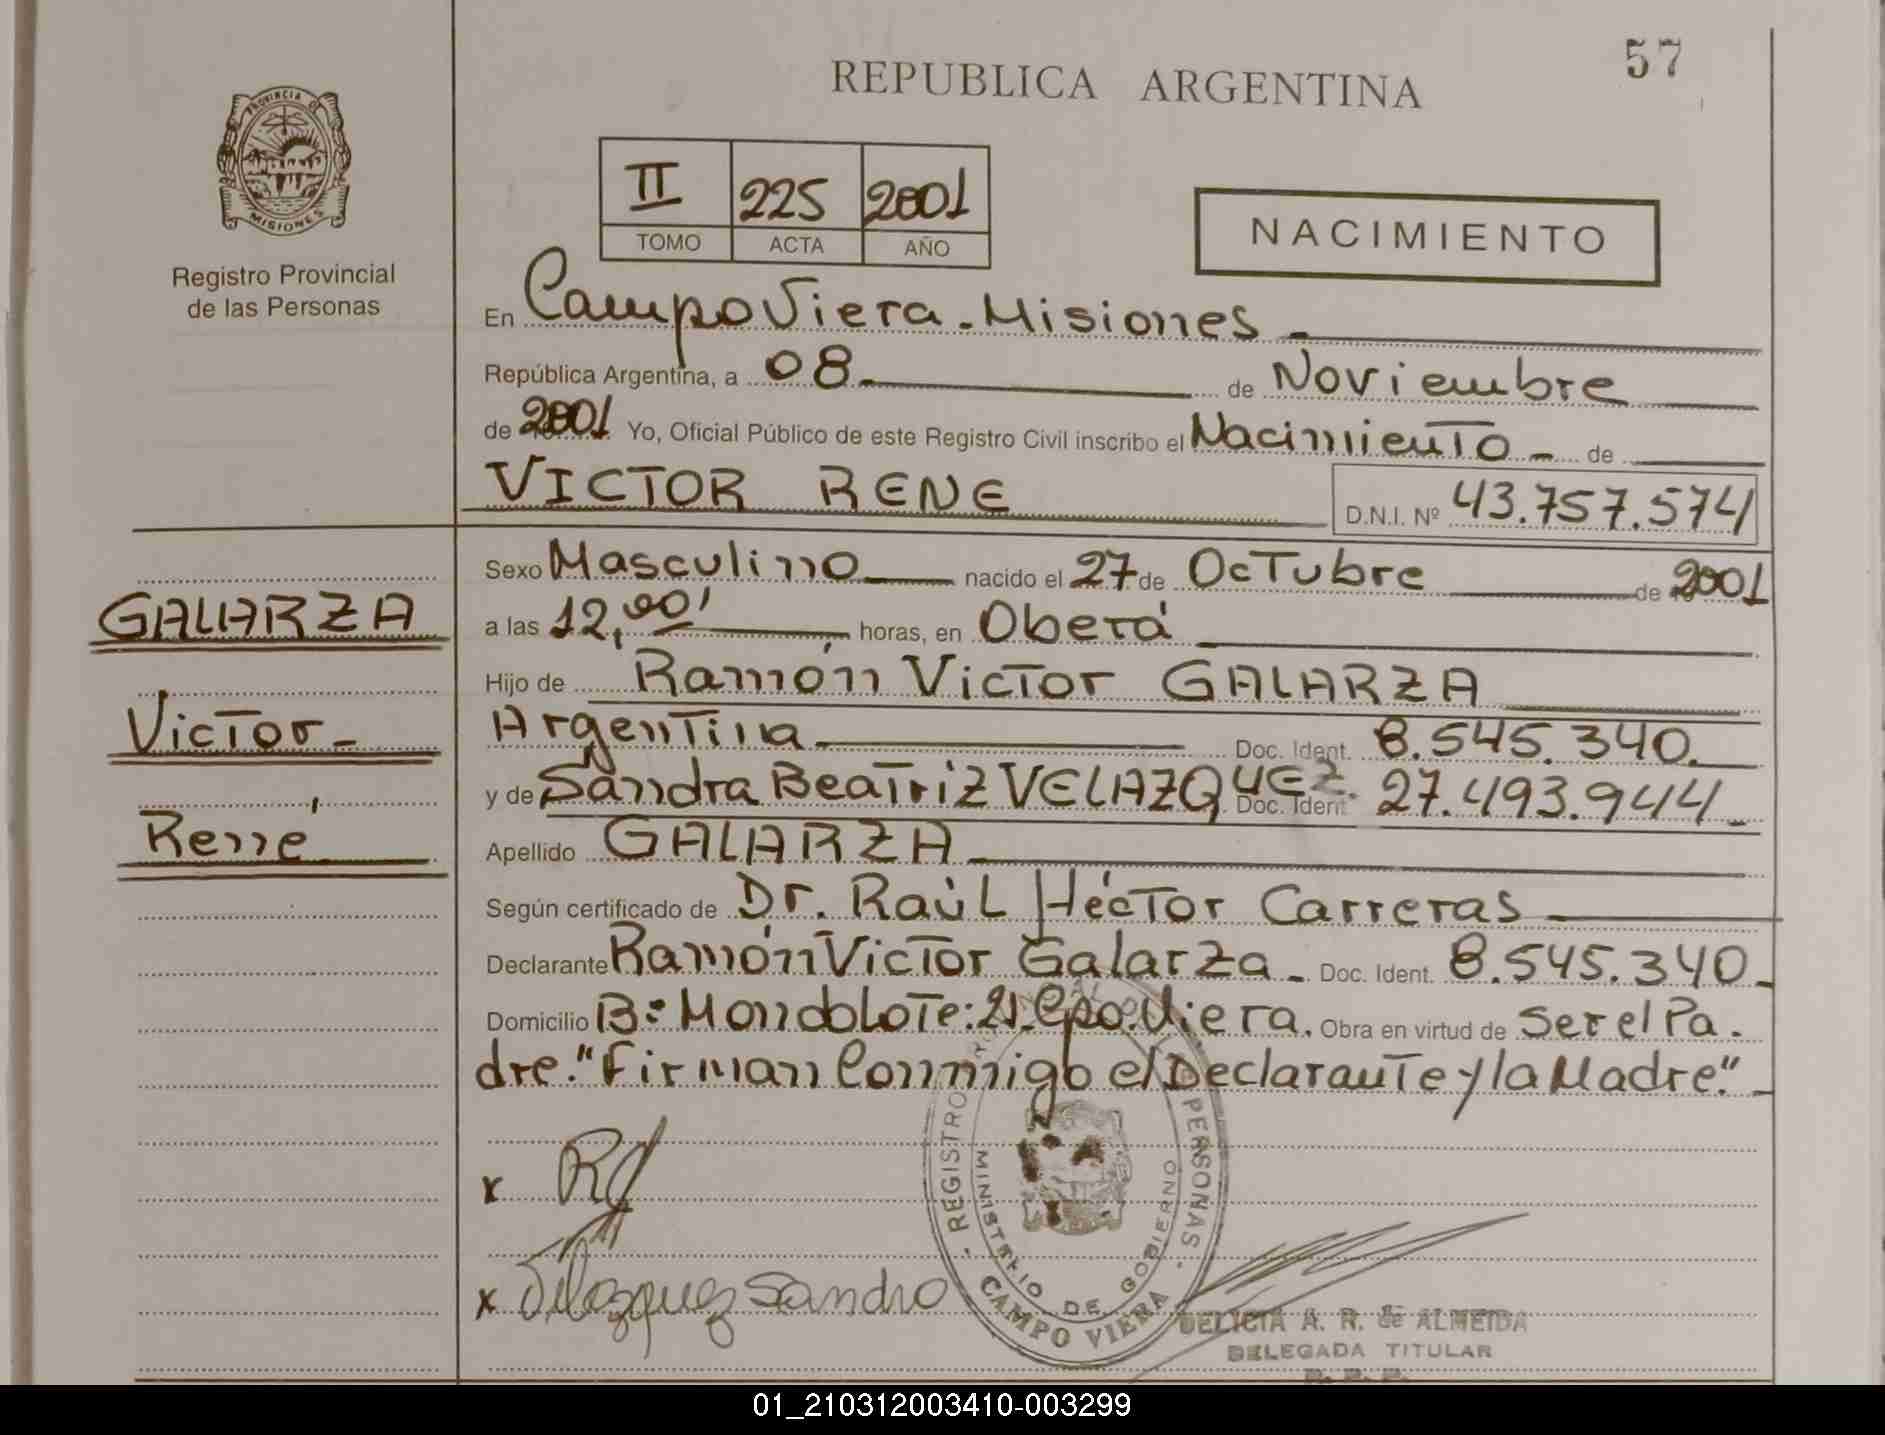 57
REPUBLICA ARGENTINA
PROVINCIA D
MISIONES
Registro Provincial
de las Personas
II 225 2001
TOMO ACTA AÑO
NACIMIENTO
En Campo Viera.Misiones
República Argentina, a 08 de Noviembre
de 2001 Yo, Oficial Público de este Registro Civil inscribo el Nacimiento de
VICTOR RENE D.N.I. Nº 43.757.574
Sexo Masculino nacido el 27 de Octubre de 2001
GALARZA
a las 12,00' horas, en Oberá
Hijo de Ramón Victor GALARZA
Victor
Argentina Doc. Ident. 8.545.340.
y de Sandra Beatriz VELAZQUEZ. Doc. Ident. 27.493.944
René
Apellido GALARZA
Según certificado de Dr. Raúl Héctor Carreras
Declarante Ramón Victor Galarza Doc. Ident. 8.545.340
Domicilio B: Mondolote: 21. Cpo. Viera. Obra en virtud de Ser el Pa.
dre."Firman Conmigo el Declarante y la Madre."
x
x Velazquez Sandra
REGISTRO PERSONAS
MINISTERIO DE GOBIERNO
CAMPO VIERA
DELICIA A. R. de ALMEIDA
DELEGADA TITULAR
01_210312003410-003299